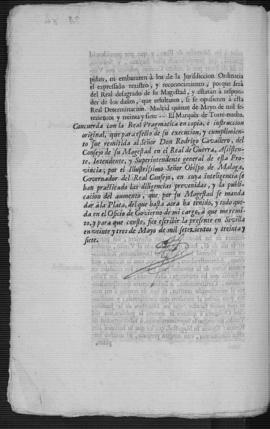 pidan, ni embaracen à los de la Jurisdiccion Ordinaria
el expressado registro, y reconocimiento; porque serà
del Real desagrado de su Magestad, y estaràn à respon-
der de los daños, que resultaren, si se opusieren à esta
Real Determinacion. Madrid quince de Mayo de mil se-
tecientos y treinta y siete. -- El Marquès de Torre-nueba.
Concuerda con la Real Pragmatica en copia, è instruccion
original, que para efecto de su execucion, y cumplimiento
fue remitida al Señor Don Rodrigo Cavallero, del
Consejo de su Magestad en el Real de Guerra, Assisten-
te, Intendente, y Superintendente general de esta Pro-
vincia; por el Illustrissimo Señor Obispo de Malaga,
Governador del Real Consejo, en cuya inteligencia se
han practicado las diligencias prevenidas, y la publi-
cacion del aumento, que por su Magestad se manda
dar à la Plata, del que hasta aora ha tenido, y todo que-
da en el Oficio de Govierno de mi cargo, à que me remi-
to, y para que conste, fice escribir la presente en Sevilla
en veinte y tres de Mayo de mil setecientos y treinta y
siete.